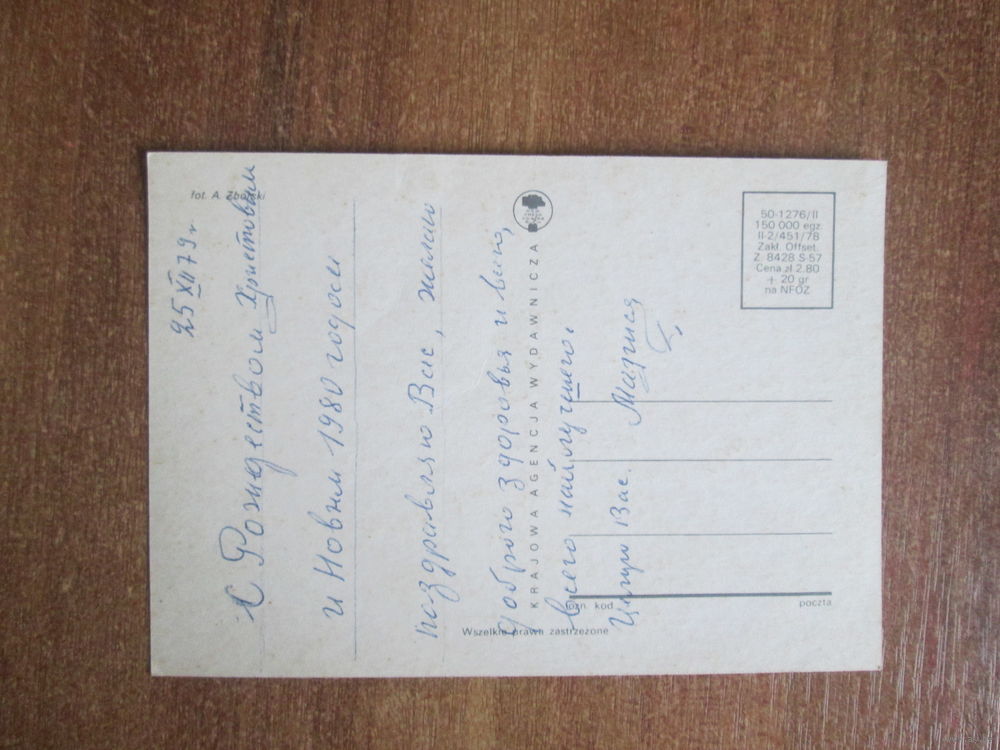 25 XII 79 г
С Рождеством Христовым
и Новым 1980 годом
поздравляю Вас, желаю
доброго здоровья и
всего найлучшего.
Целую Вас.
fot. A. Zborski
KRAJOWA AGENCJA WYDAWNICZA
Wszelkie prawa zastrzeżone
ozn. kod
poczta
50-1276/II
150 000 egz.
II-2/451/78
Zakł. Offset.
Z. 8428 S-57
Cena zł 2.80
+ 20 gr
na NFOZ